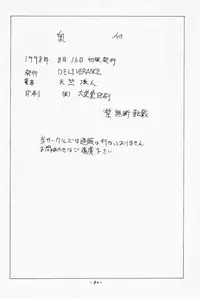 奥付
1998年 8月16日 初版発行
発行 DELIVERANCE
著者 天竺浪人
印刷 ㈱ 大栄堂印刷
禁無断転載
当サークルでは通販は行なっておりません
お問合わせはご遠慮下さい